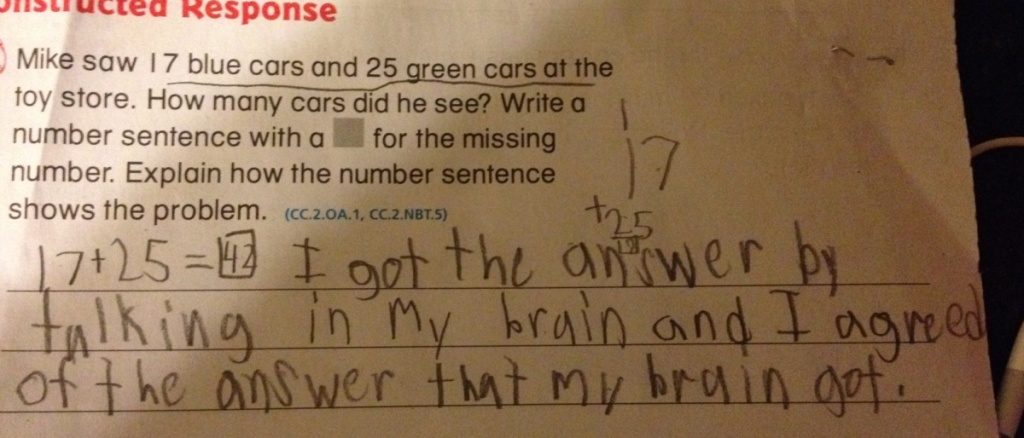 onstructed Response
Mike saw 17 blue cars and 25 green cars at the
toy store. How many cars did he see? Write a
number sentence with a for the missing
number. Explain how the number sentence
shows the problem. (CC.2.OA.1, CC.2.NBT.5)
1
17
+25
17+25=42 I got the answer by
talking in my brain and I agreed
of the answer that my brain got.